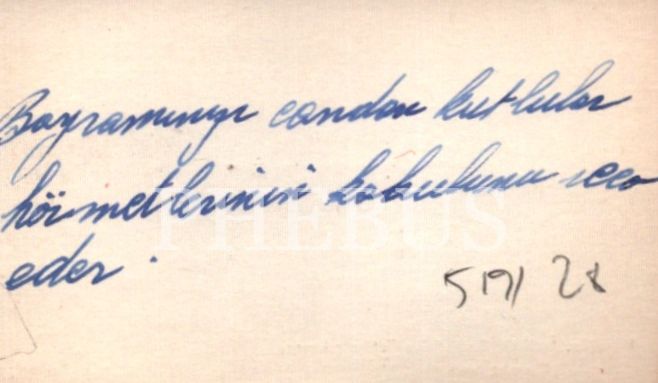 Bayramınızı candan kutlular
hörmetlerinin kabulunu reca
eder.
PHEBUS